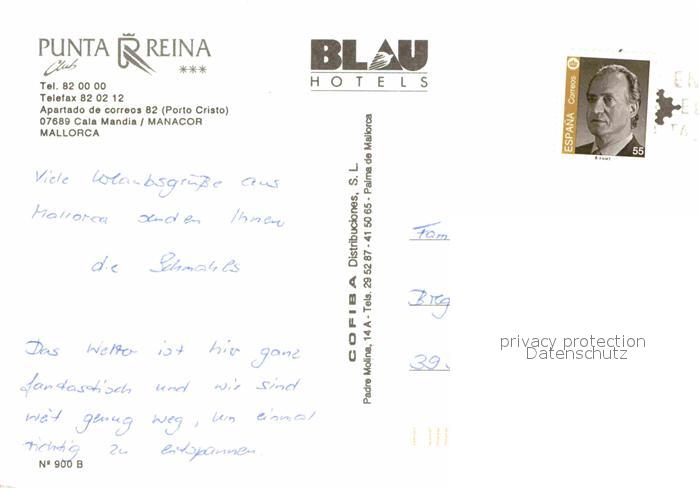 PUNTA REINA
Club ***
Tel. 82 00 00
Telefax 82 02 12
Apartado de correos 82 (Porto Cristo)
07689 Cala Mandia / MANACOR
MALLORCA
BLAU
HOTELS
ESPAÑA Correos
55
R.F.N.M.T.
Viele Urlaubsgrüße aus
Mallorca senden Ihnen
die Schmahls
Das Wetter ist hier ganz
fantastisch und wir sind
weit genug weg, um einmal
richtig zu entspannen.
Nº 900 B
COFIBA Distribuciones, S. L.
Padre Molina, 14 A - Tels. 29 52 87 - 41 50 65 - Palma de Mallorca
Fam
Breg
39.
privacy protection
Datenschutz